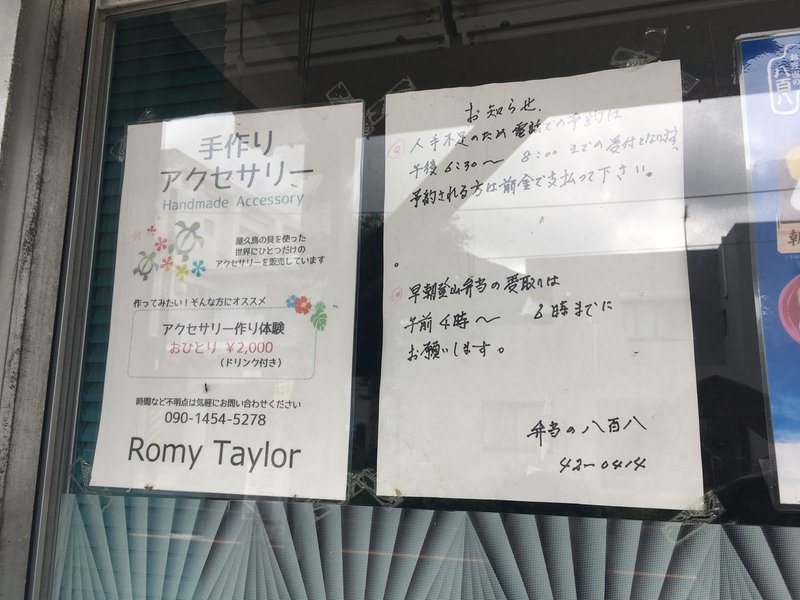 手作り
アクセサリー
Handmade Accessory
屋久島の貝を使った
世界にひとつだけの
アクセサリーを販売しています
作ってみたい！そんな方にオススメ
アクセサリー作り体験
おひとり ¥2,000
（ドリンク付き）
時間など不明点は気軽にお問い合わせください
090-1454-5278
Romy Taylor
お知らせ.
人手不足のため電話での予約は
午後6:30〜 8:00までの受付となります
予約される方は前金で支払って下さい。
早朝登山弁当の受取りは
午前4時〜 8時までに
お願いします。
弁当の八百八
42-0414
八百八
朝